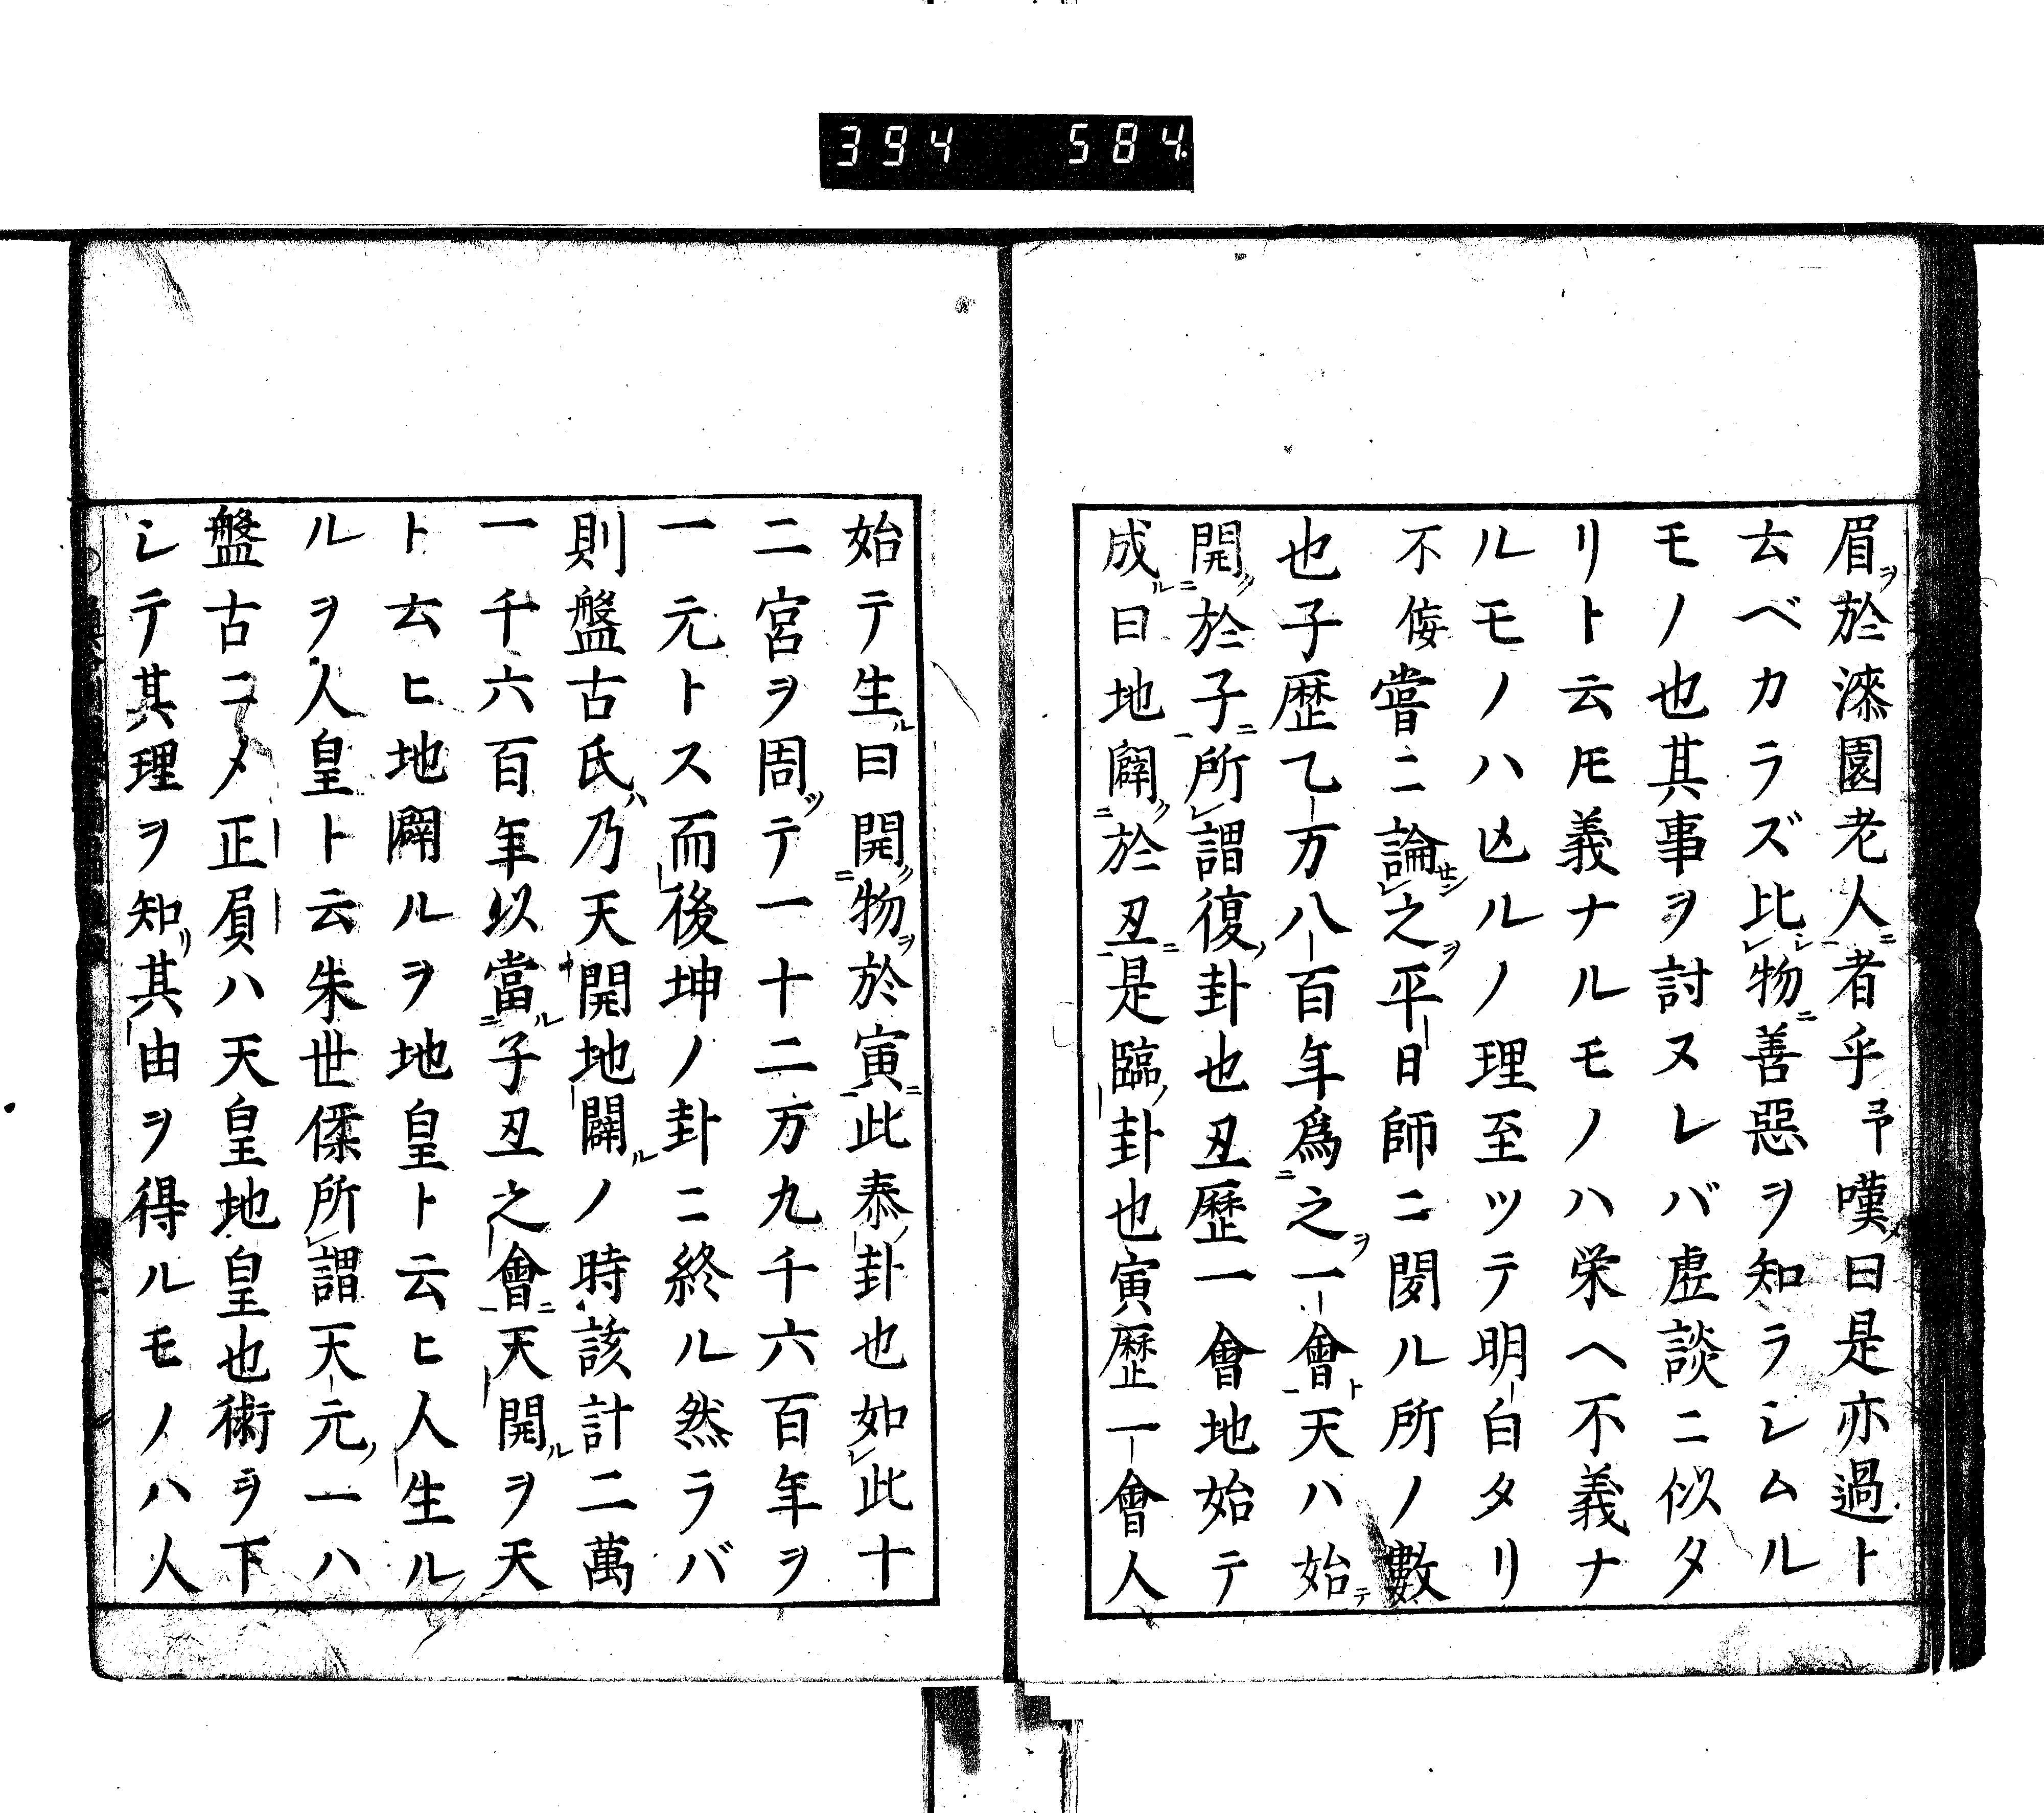 394 584
眉ヲ於漆園老人ニ者乎予嘆メ曰是亦過ト
云ベカラズ比レ物ニ善惡ヲ知ラシムル
モノ也其事ヲ討ヌレバ虚談ニ似タ
リト云𪜈義ナルモノハ栄ヘ不義ナ
ルモノハ凶ルノ理至ツテ明白タリ
不侫嘗ニ論セン之ヲ平日師ニ聞ル所ノ數
也子歴乙万八百年為之ヲ一會ト天ハ始テ
開ク於子ニ所謂復ノ卦也丑歴一會地始テ
成ル曰地闢ク於丑ニ是臨ノ卦也寅歴一會人
始テ生ル曰開ク物ヲ於寅ニ此泰ノ卦也如此十
二宮ヲ周ツテ一十二万九千六百年ヲ
一元トス而後坤ノ卦ニ終ル然ラバ
則盤古氏ハ乃天開地闢ルノ時該計二萬
一千六百年以當ル子丑之會ニ天開ルヲ天
ト云ヒ地闢ルヲ地皇ト云ヒ人生ル
ルヲ人皇ト云朱世傑所謂天元ノ一ハ
盤古ニメ正負ハ天皇地皇也術ヲ下
シテ其理ヲ知リ其由ヲ得ルモノハ人